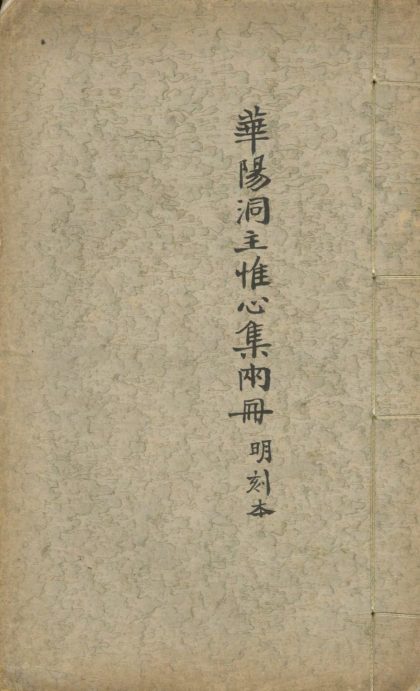 華陽洞主惟心集兩冊 明刻本